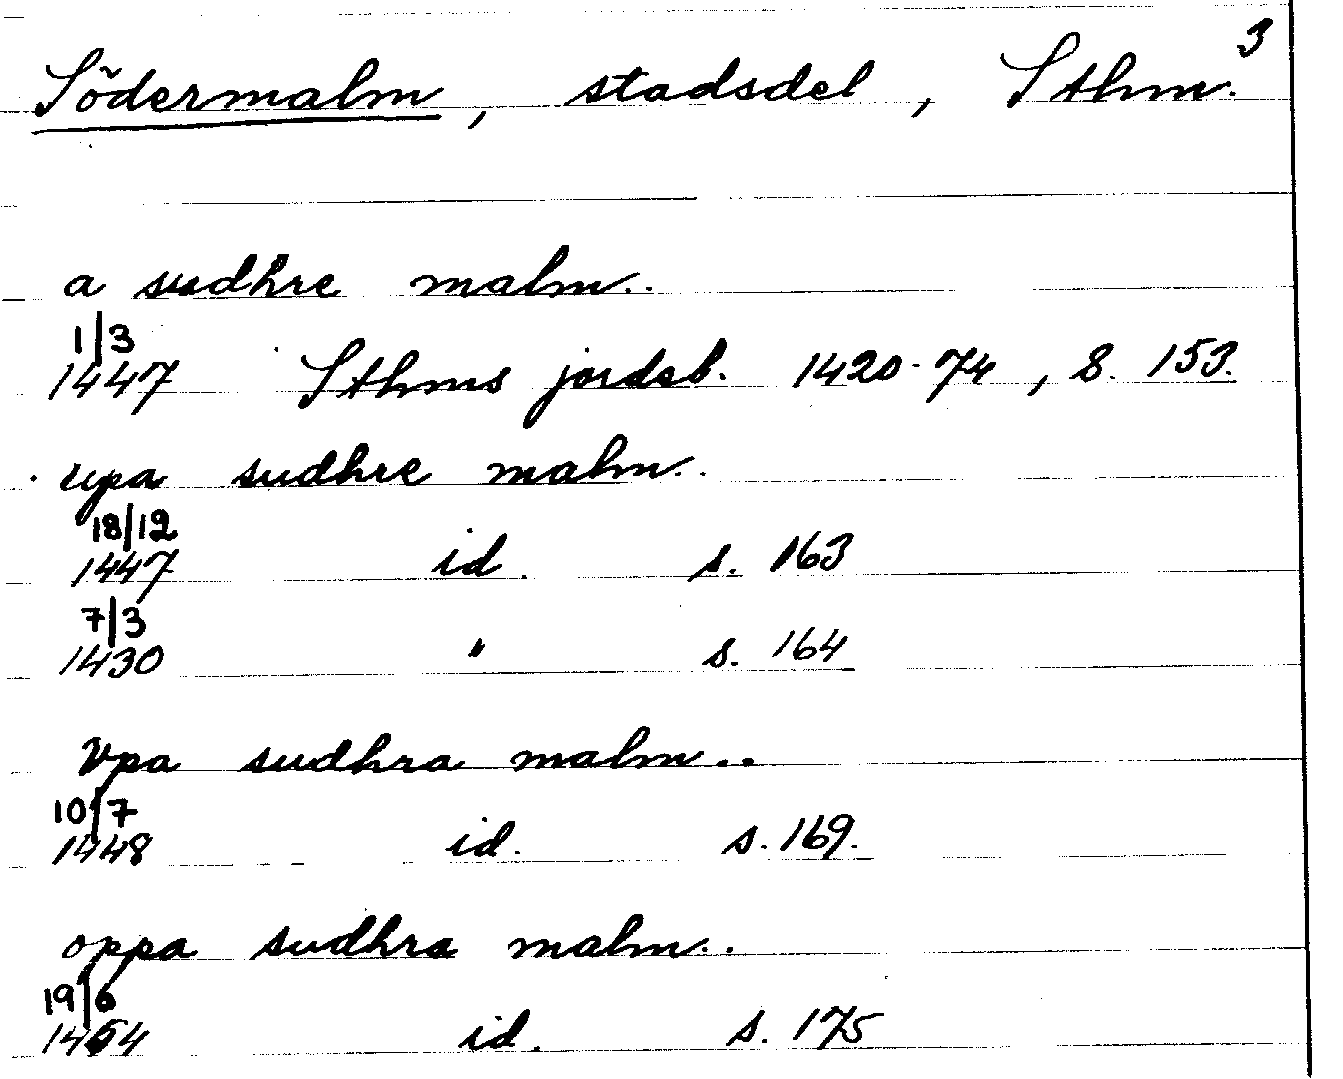 3
Södermalm, stadsdel, Sthm.
a sudhre malm..
1/3
1447 Sthms jordeb. 1420-74, S. 153.
upa sudhre malm..
18/12
1447 id. s. 163
7/3
1430 " s. 164
Vpa sudhra malm..
10/7
1448 id. s. 169.
oppa sudhra malm..
19/6
id. s. 175